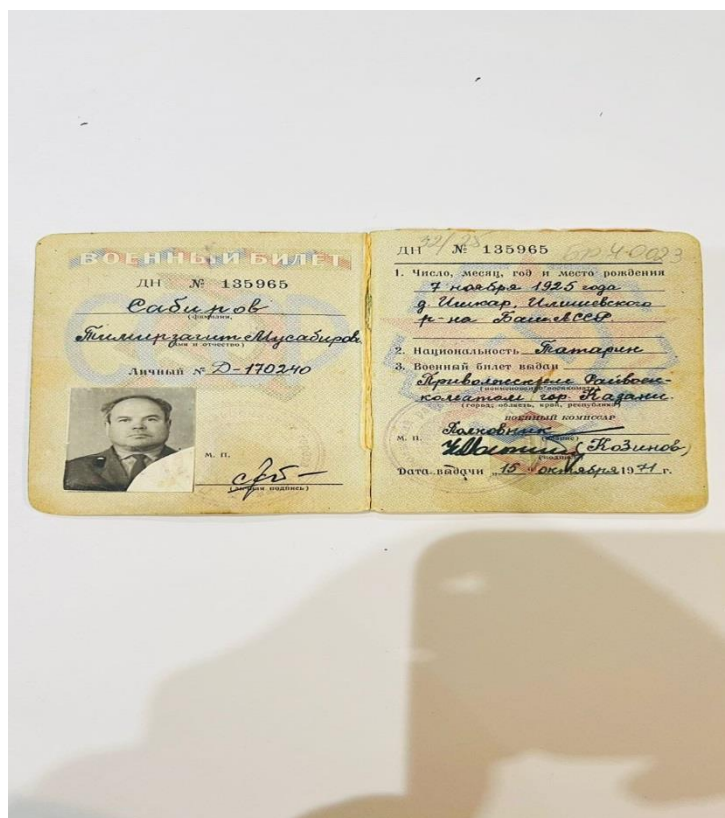 ВОЕННЫЙ БИЛЕТ
ДН № 135965
Сабиров
(фамилия,
Тимирзагит Мусабиров
имя и отчество)
Личный № Д-170240
М. П.
(личная подпись)
32/25
ДН № 135965
1. Число, месяц, год и место рождения
7 ноября 1925 года
д. Ишкар, Илишевского
р-на БашАССР
2. Национальность Татарин
3. Военный билет выдан
Приволжским Райвоен-
коматом гор. Казани.
(город, область, край, республика)
ВОЕННЫЙ КОМИССАР
Полковник
М. П.
(Козинов)
(подпись)
Дата выдачи „15" октября 1971 г.